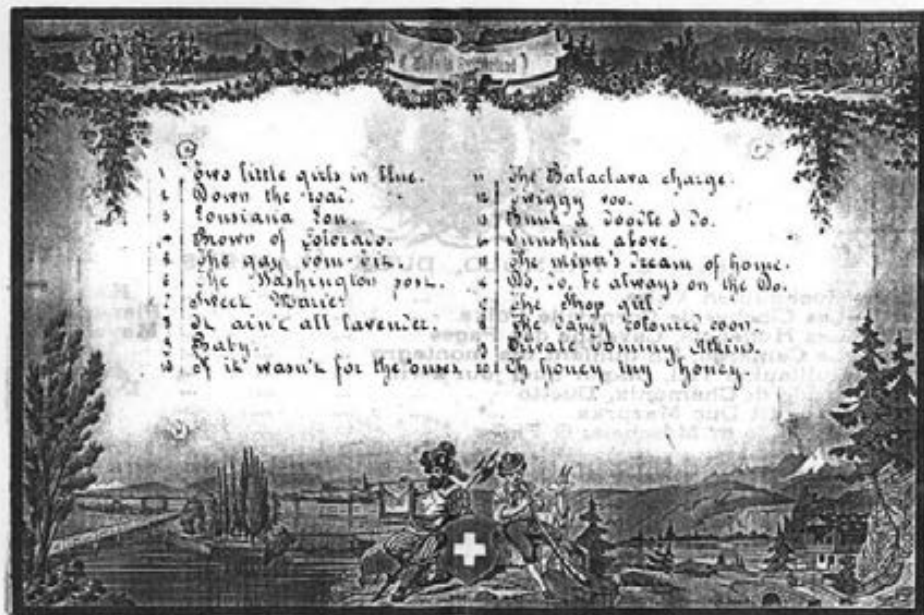 Made in Switzerland
1 Two little girls in blue.
2 Down the road.
3 Lousiana Lou.
4 Brown of Colorado.
5 The gay Tom Tit.
6 The Washington post.
7 Sweet Marie
8 It ain't all lavender.
9 Baby.
10 If it wasn't for the 'ouses
11 The Balaclava charge.
12 Twiggy voo.
13 Bunk a doodle I do.
14 Sunshine above.
15 The miner's dream of home.
16 Do, do, be always on the Do.
17 The Shop girl.
18 The dandy coloured coon.
19 Private Tommy Atkins.
20 Oh honey my honey